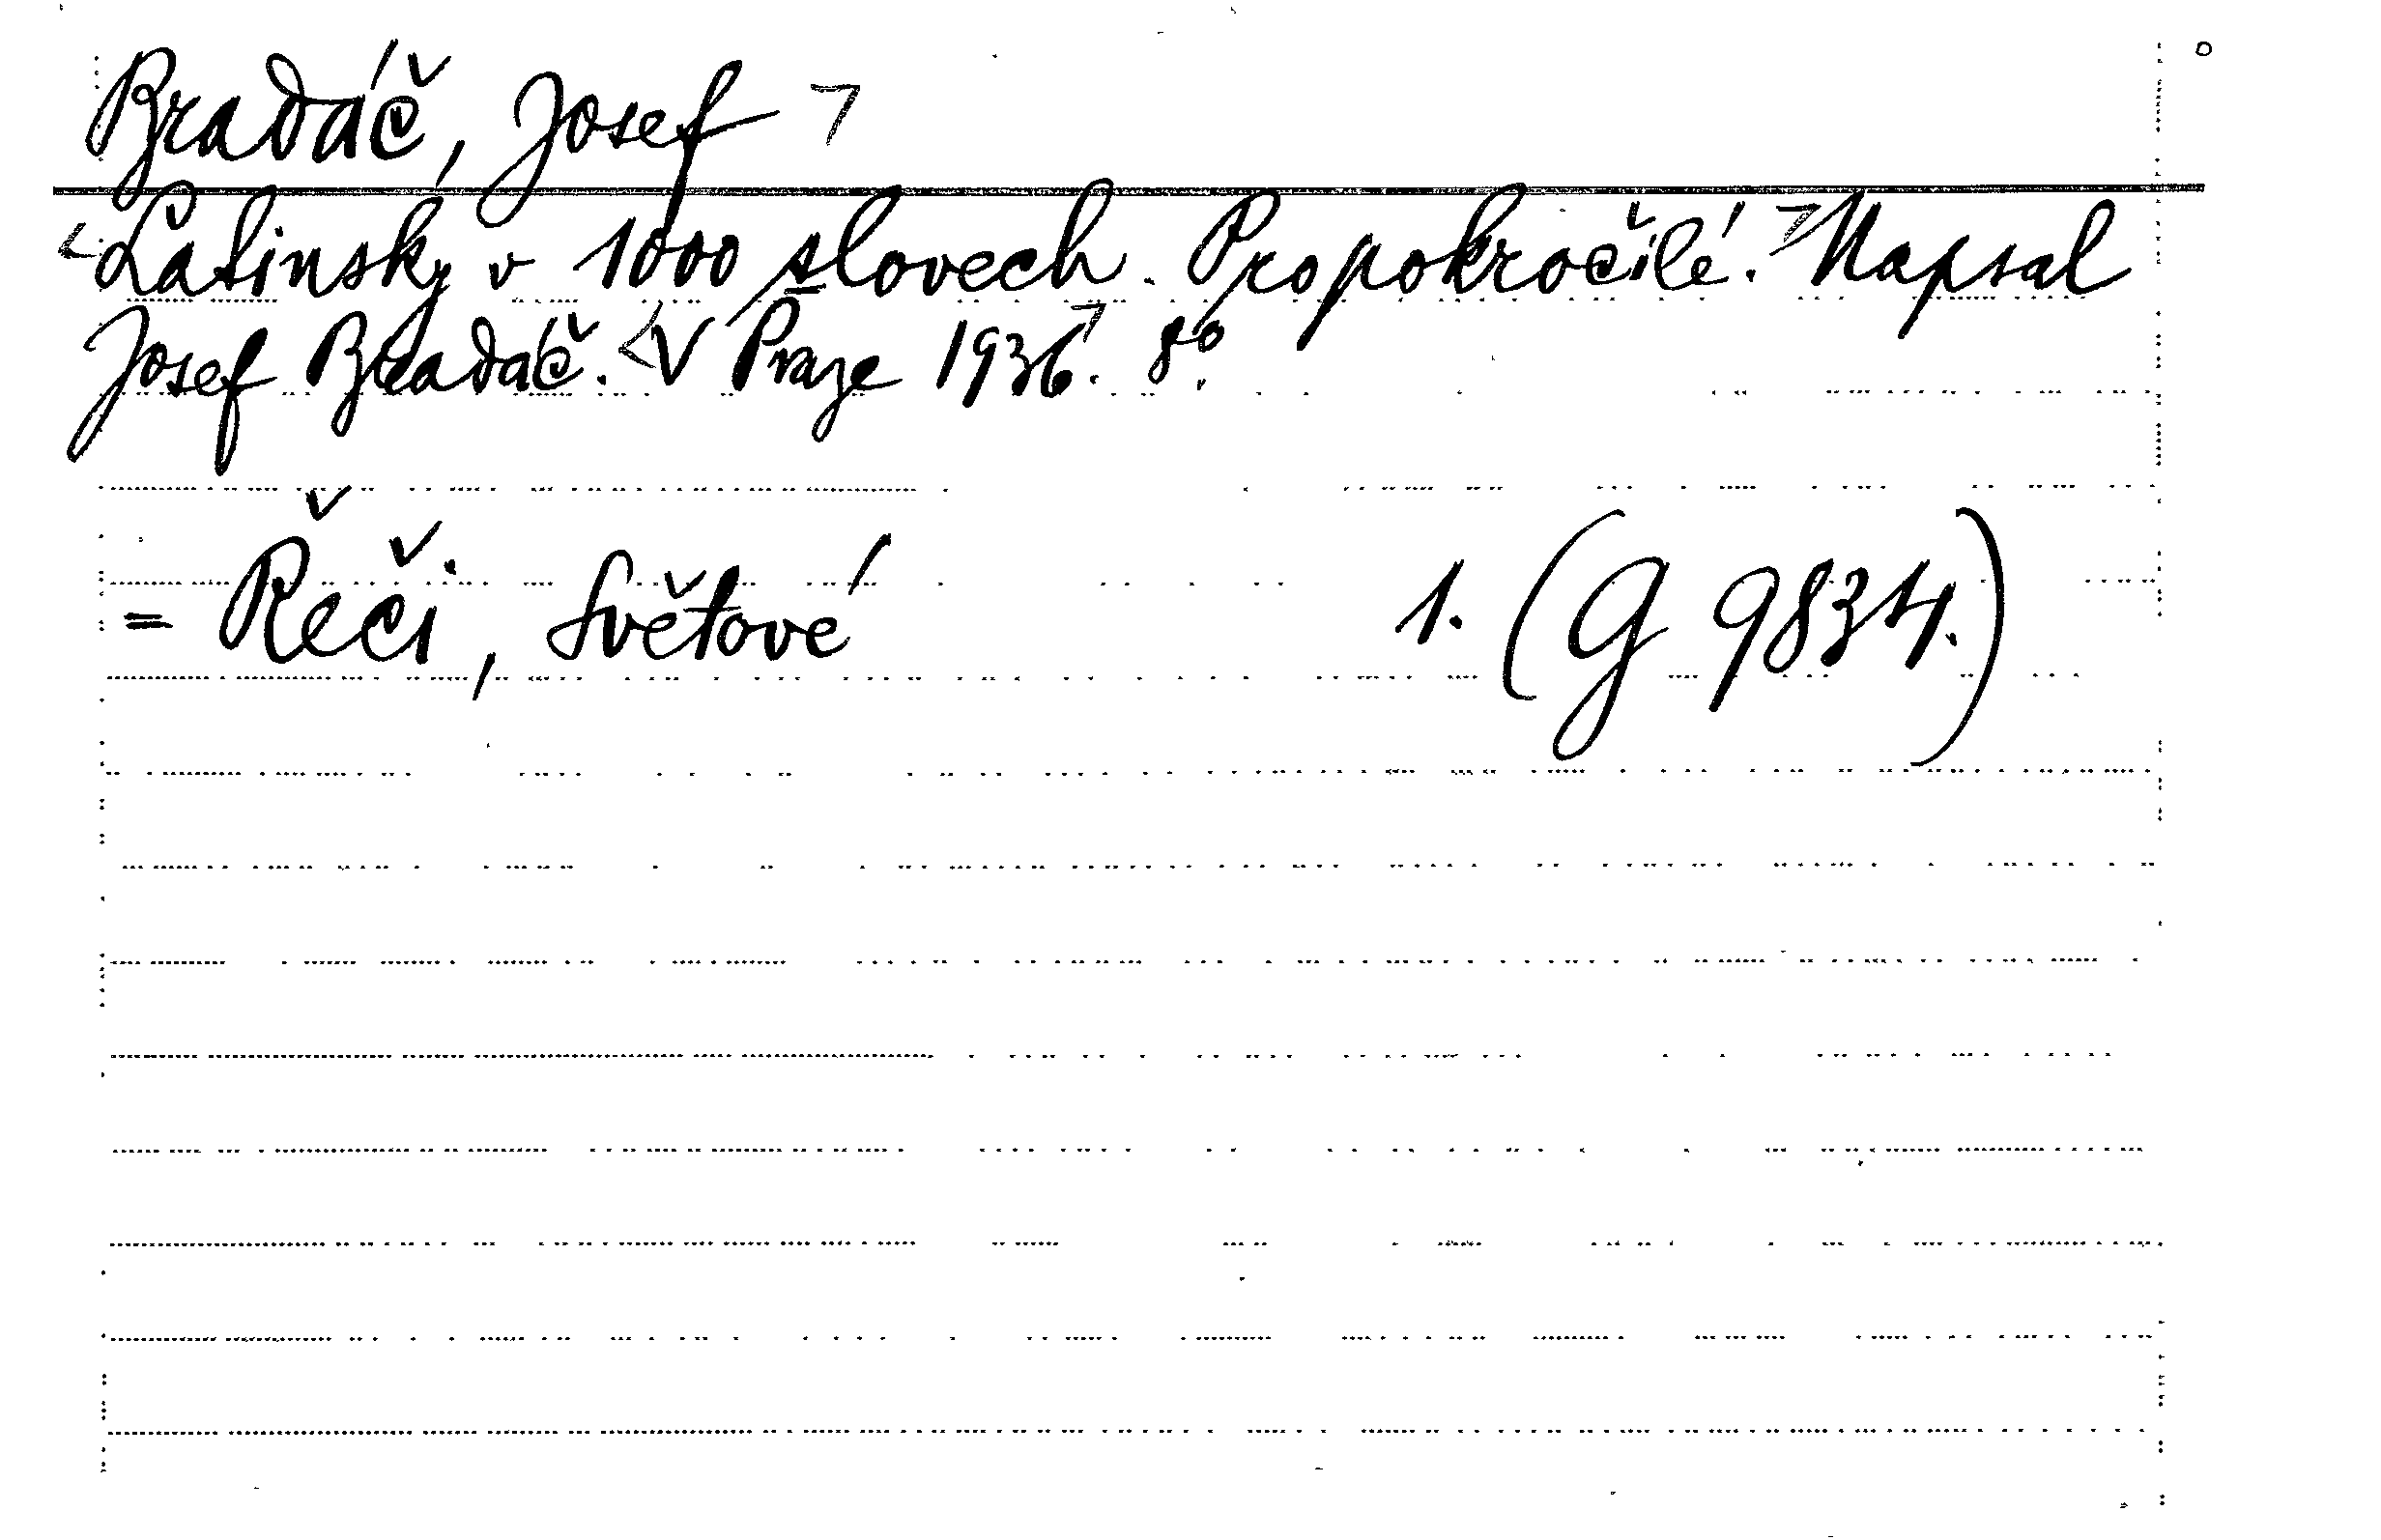 Bradáč, Josef >
< Latinsky v 1000 slovech. Pro pokročilé. > Napsal
Josef Bradáč. < V Praze 1936 >. 8º.
= Řeči, světové 1. (G 9834.)